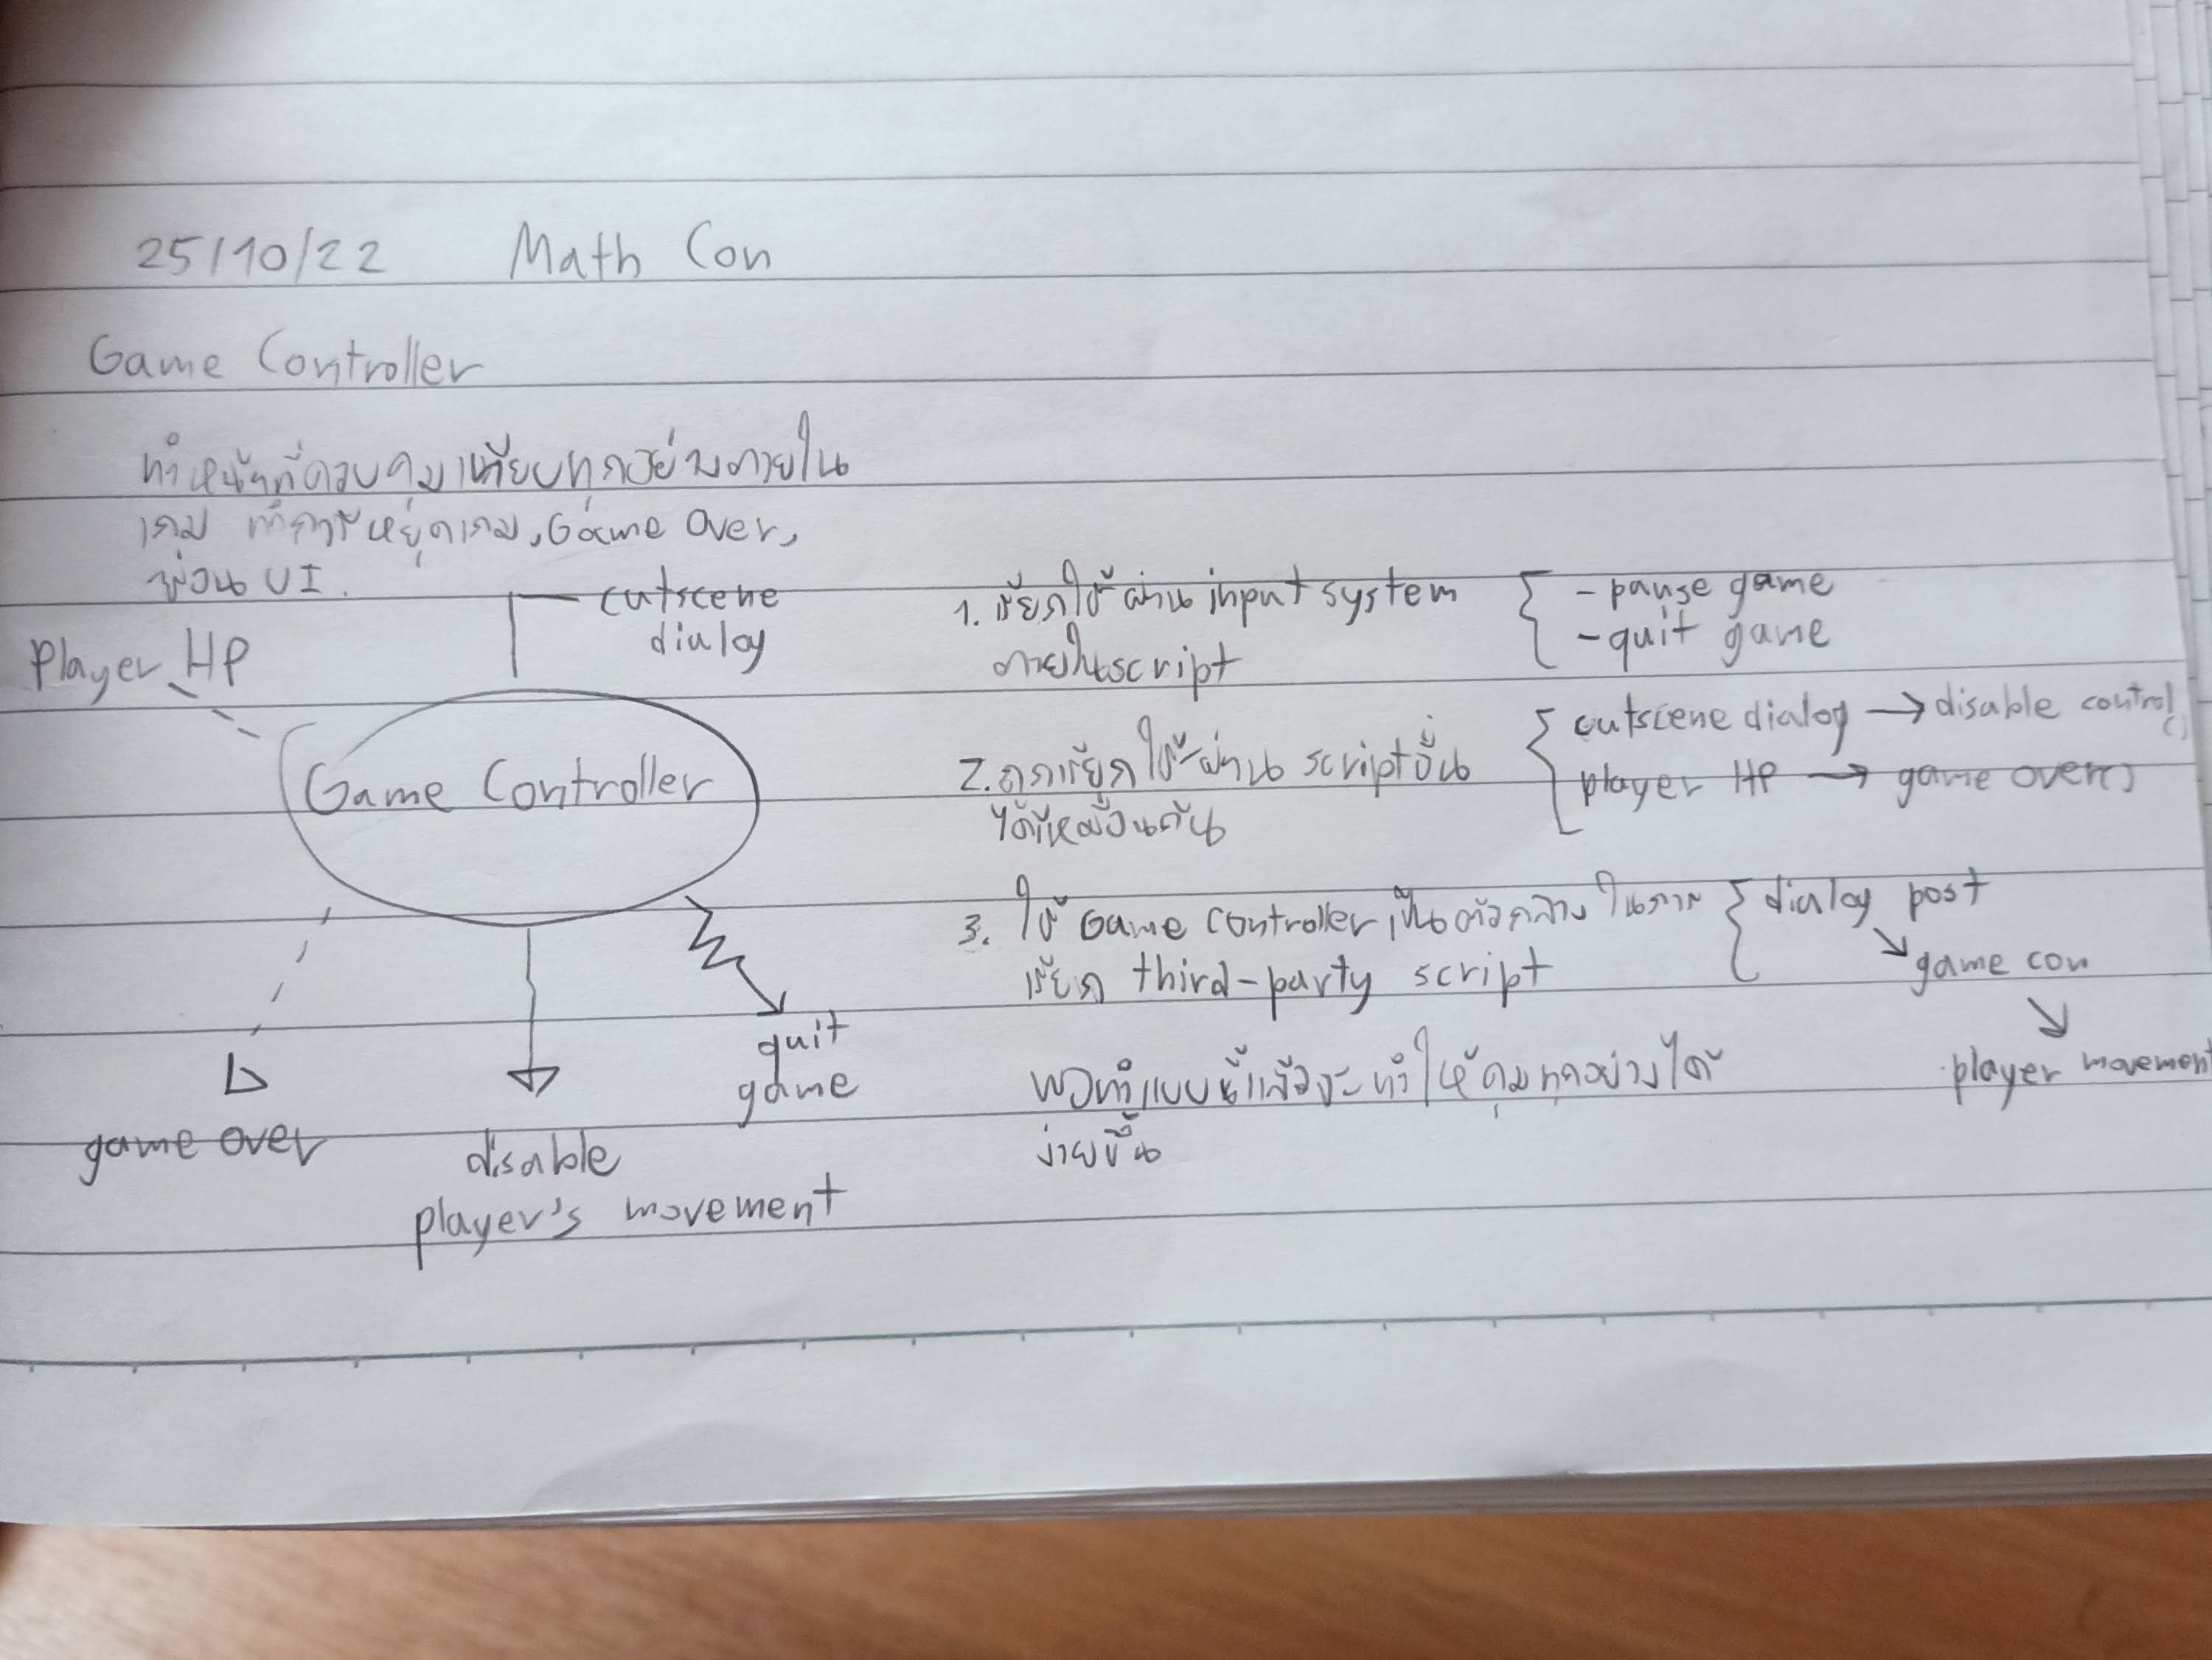 25/10/22 Math Con
Game Controller
ทำหน้าที่ควบคุมเกือบทุกอย่างภายใน
เกม ทั้งการหยุดเกม, Game Over,
ซ่อน UI.
cutscene
dialog
Player HP
Game Controller
game over
disable
player's movement
quit
game
1. เรียกใช้ผ่าน input system
ภายใน script
- pause game
- quit game
2. ถูกเรียกใช้ผ่าน script อื่น
ได้เหมือนกัน
cutscene dialog → disable control
()
player HP → game over()
3. ใช้ Game Controller เป็นตัวกลาง ในการ
เรียก third-party script
dialog post
↘ game con
↘
player movement
พอทำแบบนี้แล้วจะทำให้คุมทุกอย่างได้
ง่ายขึ้น